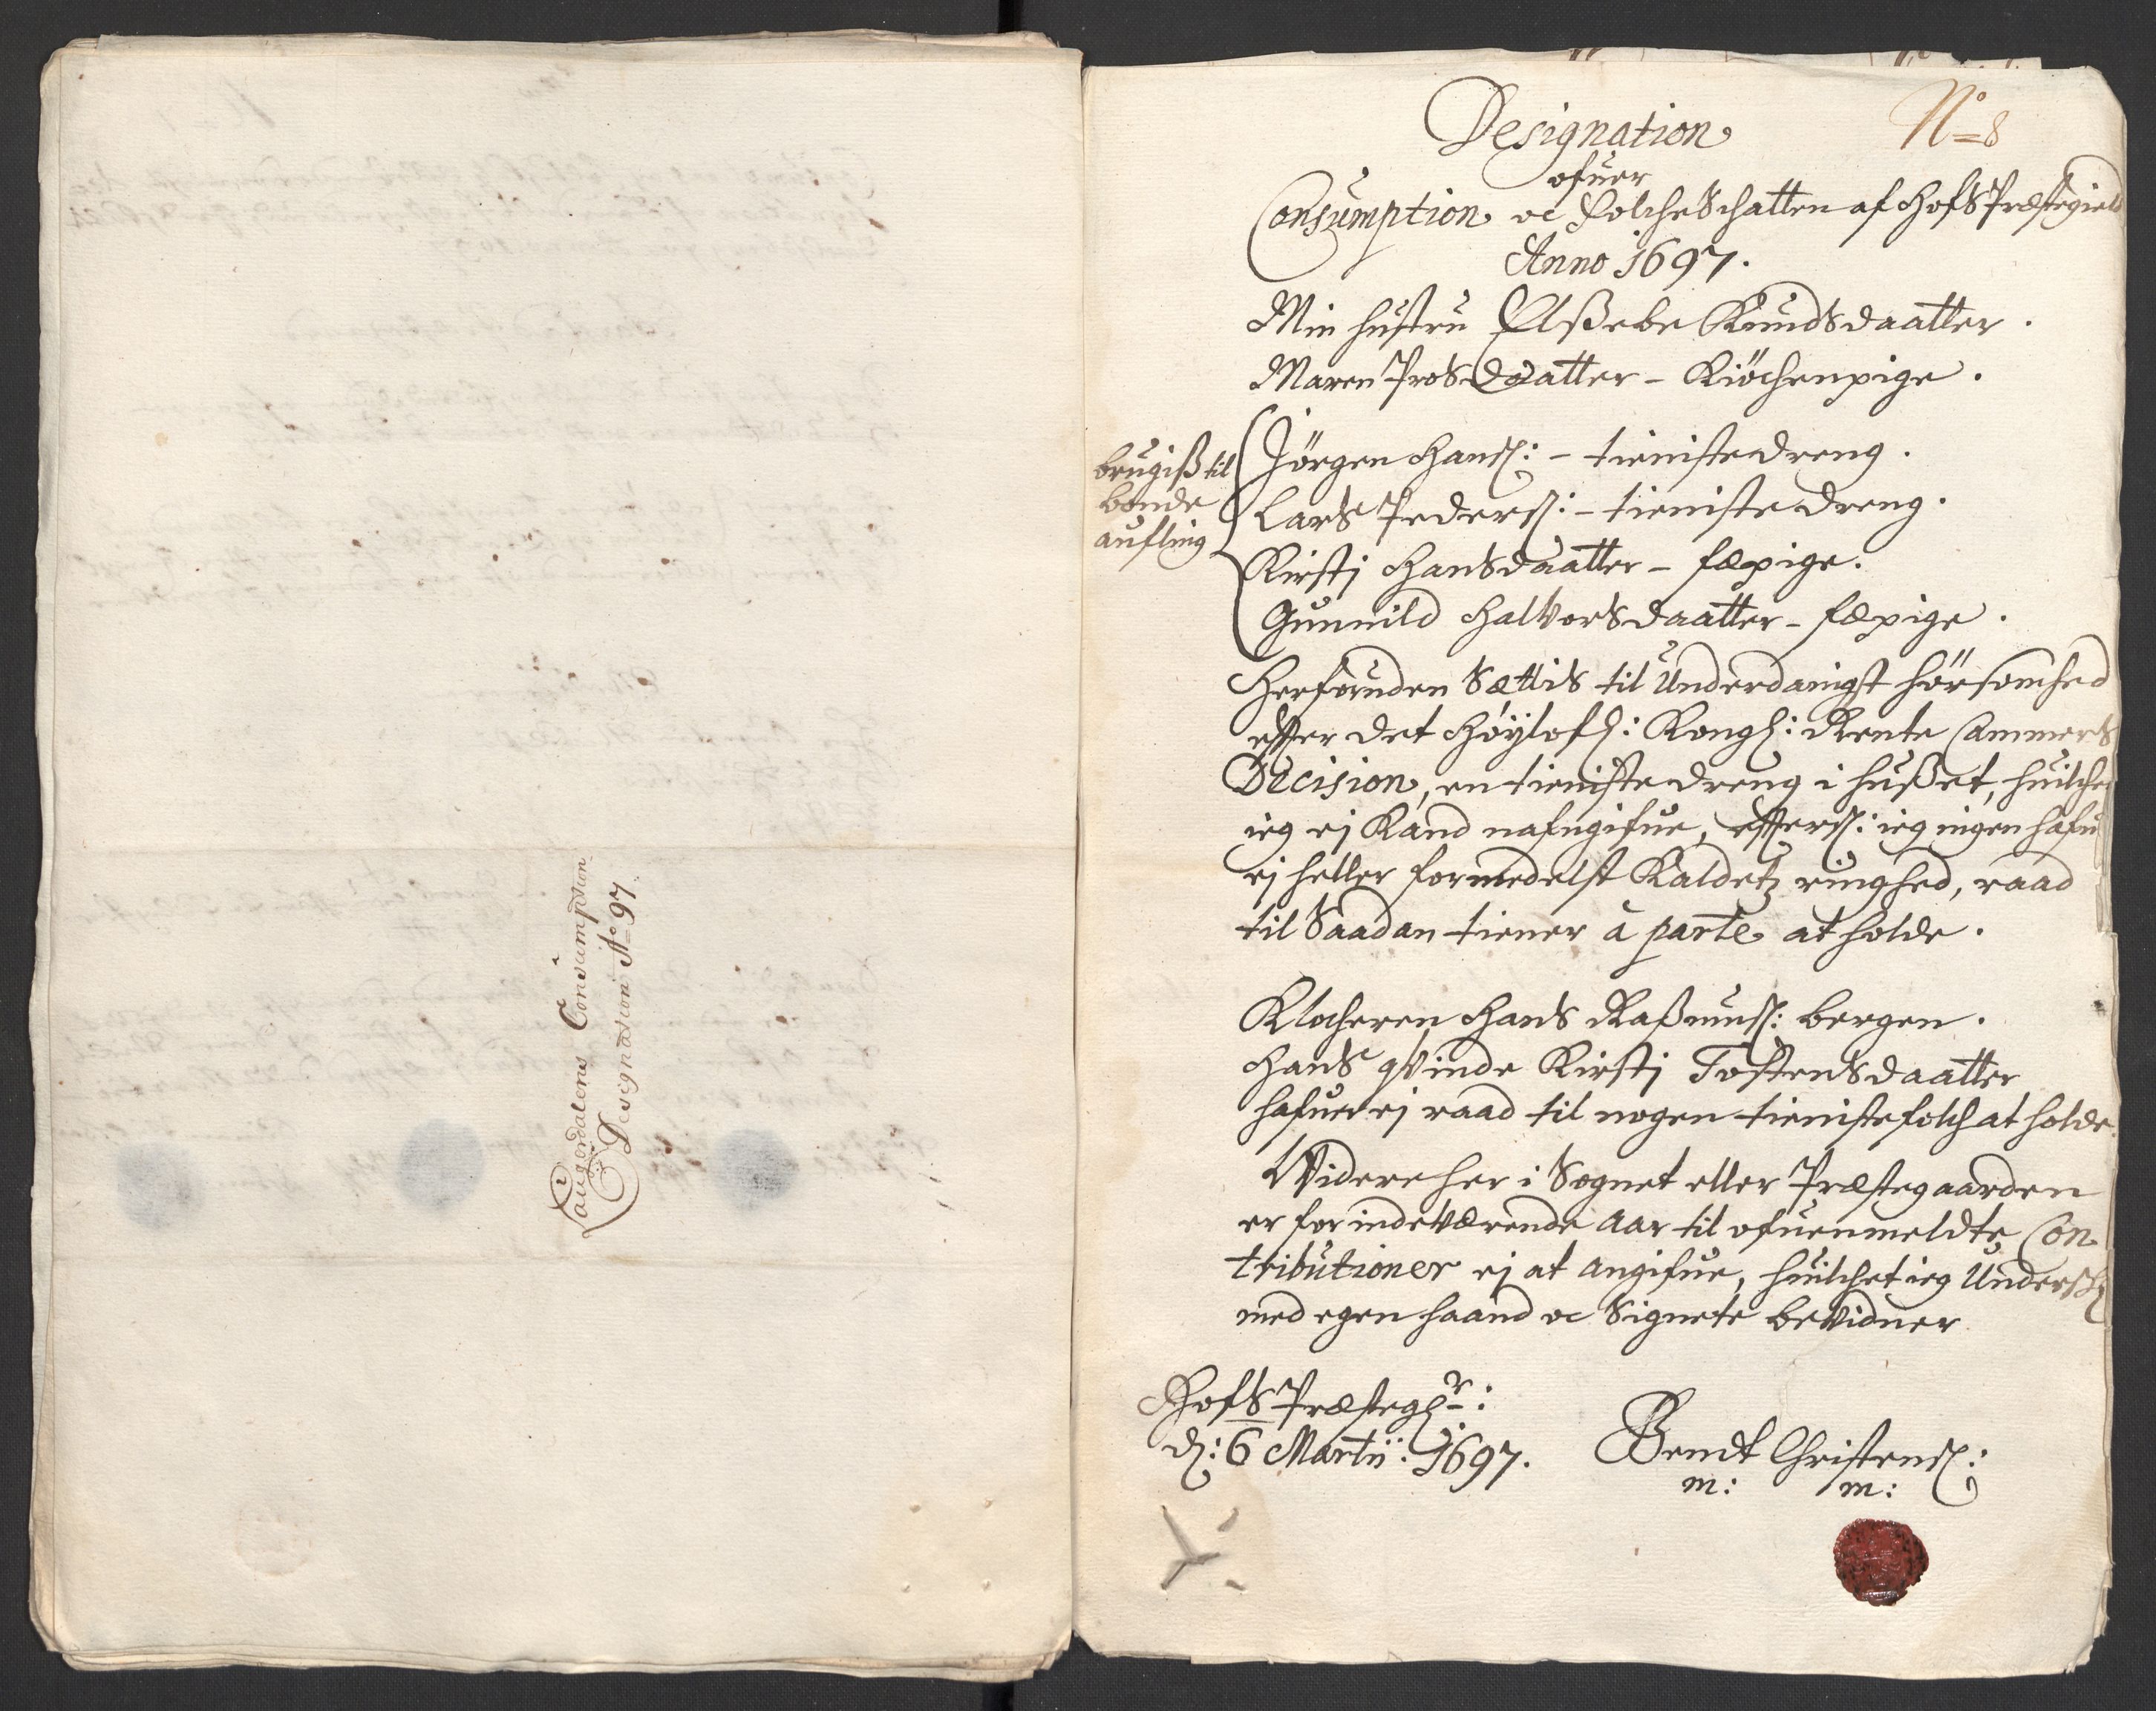 Laugerdalens Consumption
Designation Ao 97
No 8
Designation
ofuer
Consumption oc FolcheSchatten af Hofs Præstegield
Anno 1697.
Min hustru Elßebe Knudsdaatter.
Maren Prosdaatter - Kiöchenpige.
brugiß til
bonde
aufling
Jörgen Hanss: - tienistedreng.
Lars Pederss: - tieniste dreng.
Kirsti Hansdaatter - fæpige.
Gunnild Halvorsdaatter - fæpige.
Herforuden Sættis til Underdanigst hörsomhed
effter det Höylofl: Kongl: Rente Cammers
Decision, en tienistedreng i hußet, huilchen
ieg ej Kand nafngifue, effterss: ieg ingen hafu
ej heller formedelst Kaldetz ringhed, raad
til Saadan tiener à parte at holde.
Klocheren Hans Raßmuss: bergen.
Hans qvinde Kirsti Tostensdaatter
hafuer ej raad til nogen tienistefolch at holde.
Widere her i Sognet eller Præstegaarden
er for indeværende Aar til ofuenmeldte Con
tributioner ej at angifue, huilchet ieg Undersch
med egen haand oc Signete bevidner
Hofs Præstegr:
d: 6 Martii: 1697.
Bendt Christenss:
m: m: